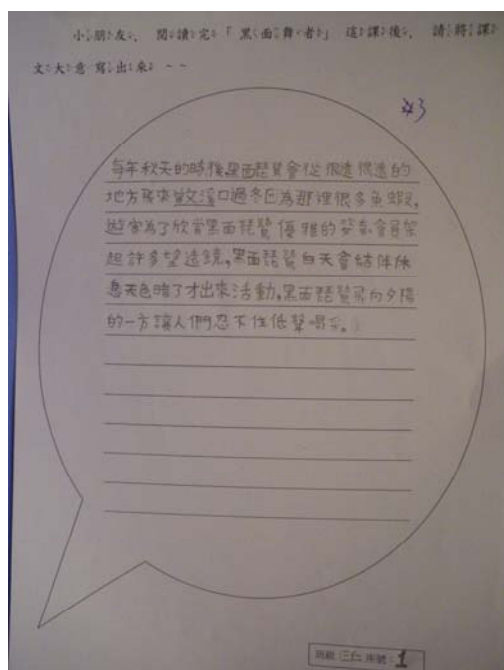 小朋友,閱讀完「黑面舞者」這課後,請將課
文大意寫出來~~
每年秋天的時後,黑面琵鷺會從很遠很遠的
地方飛來曾文溪口過冬因為那裡很多魚蝦,
遊客為了欣賞黑面琵鷺優雅的姿態會架
起許多望遠鏡,黑面琵鷺白天會結伴休
息天色暗了才出來活動,黑面琵鷺飛向夕陽
的一方讓人們忍不住低聲喝采。
班級 三仁 座號:1